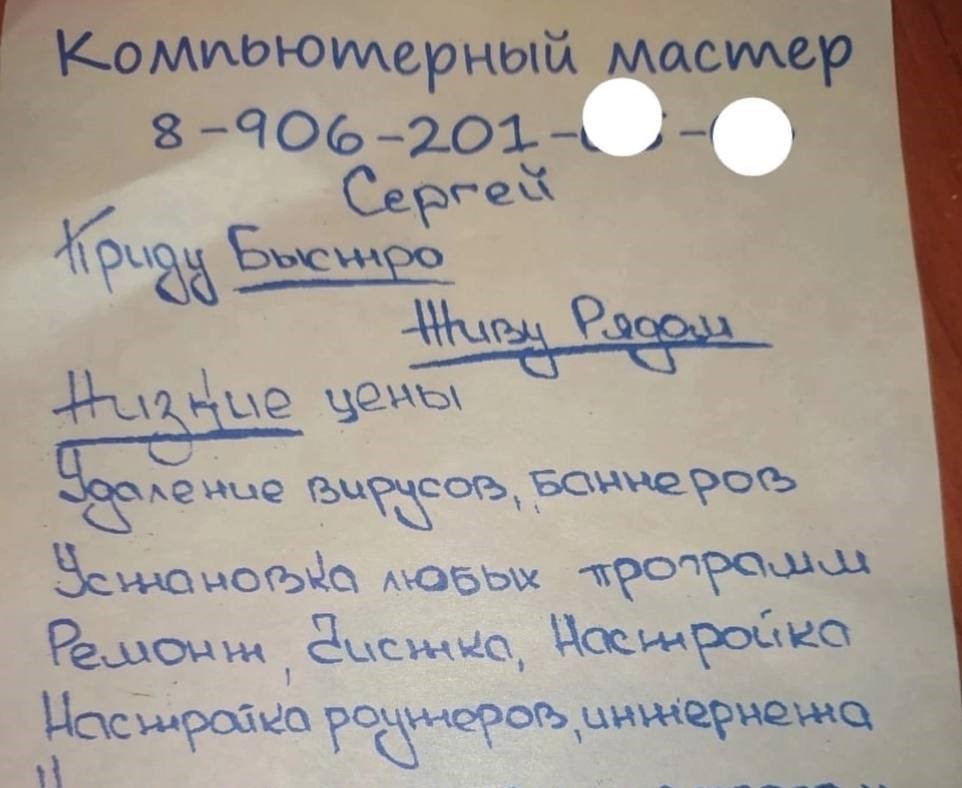 Компьютерный мастер
8-906-201-
Сергей
Приду Быстро
Живу Рядом
Низкие цены
Удаление вирусов, баннеров
Установка любых программ
Ремонт, Чистка, Настройка
Настройка роутеров, интернета